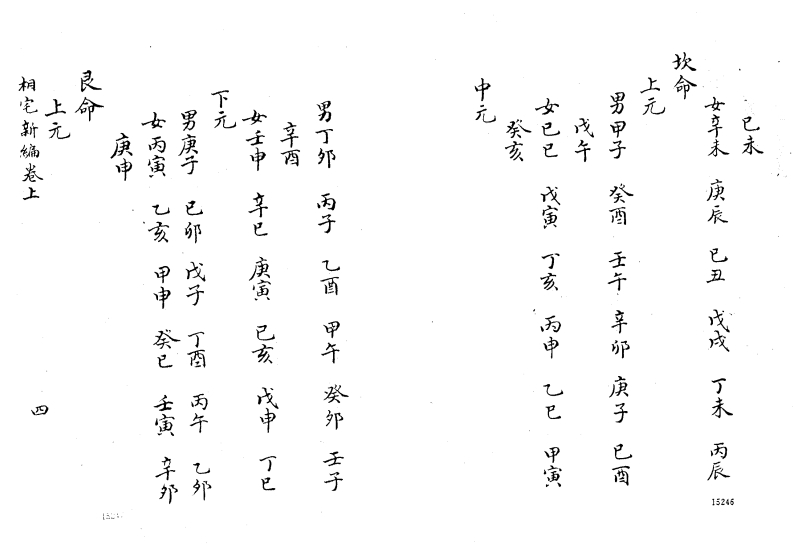 己未
女辛未 庚辰 己丑 戊戌 丁未 丙辰
坎命
上元
男甲子 癸酉 壬午 辛卯 庚子 己酉
戊午
女己巳 戊寅 丁亥 丙申 乙巳 甲寅
癸亥
中元
男丁卯 丙子 乙酉 甲午 癸卯 壬子
辛酉
女壬申 辛巳 庚寅 己亥 戊申 丁巳
下元
男庚子 己卯 戊子 丁酉 丙午 乙卯
女丙寅 乙亥 甲申 癸巳 壬寅 辛卯
庚申
艮命
上元
相宅新編卷上 四
15246